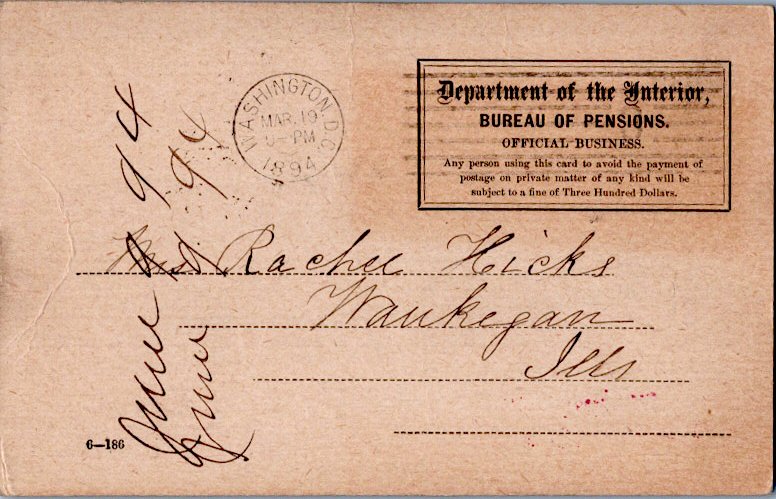 WASHINGTON, D.C.
MAR. 19
PM
1894
Department of the Interior,
BUREAU OF PENSIONS.
OFFICIAL BUSINESS.
Any person using this card to avoid the payment of
postage on private matter of any kind will be
subject to a fine of Three Hundred Dollars.
Mrs Rachel Hicks
Waukegan
Ills
6—186
June 94
June 94